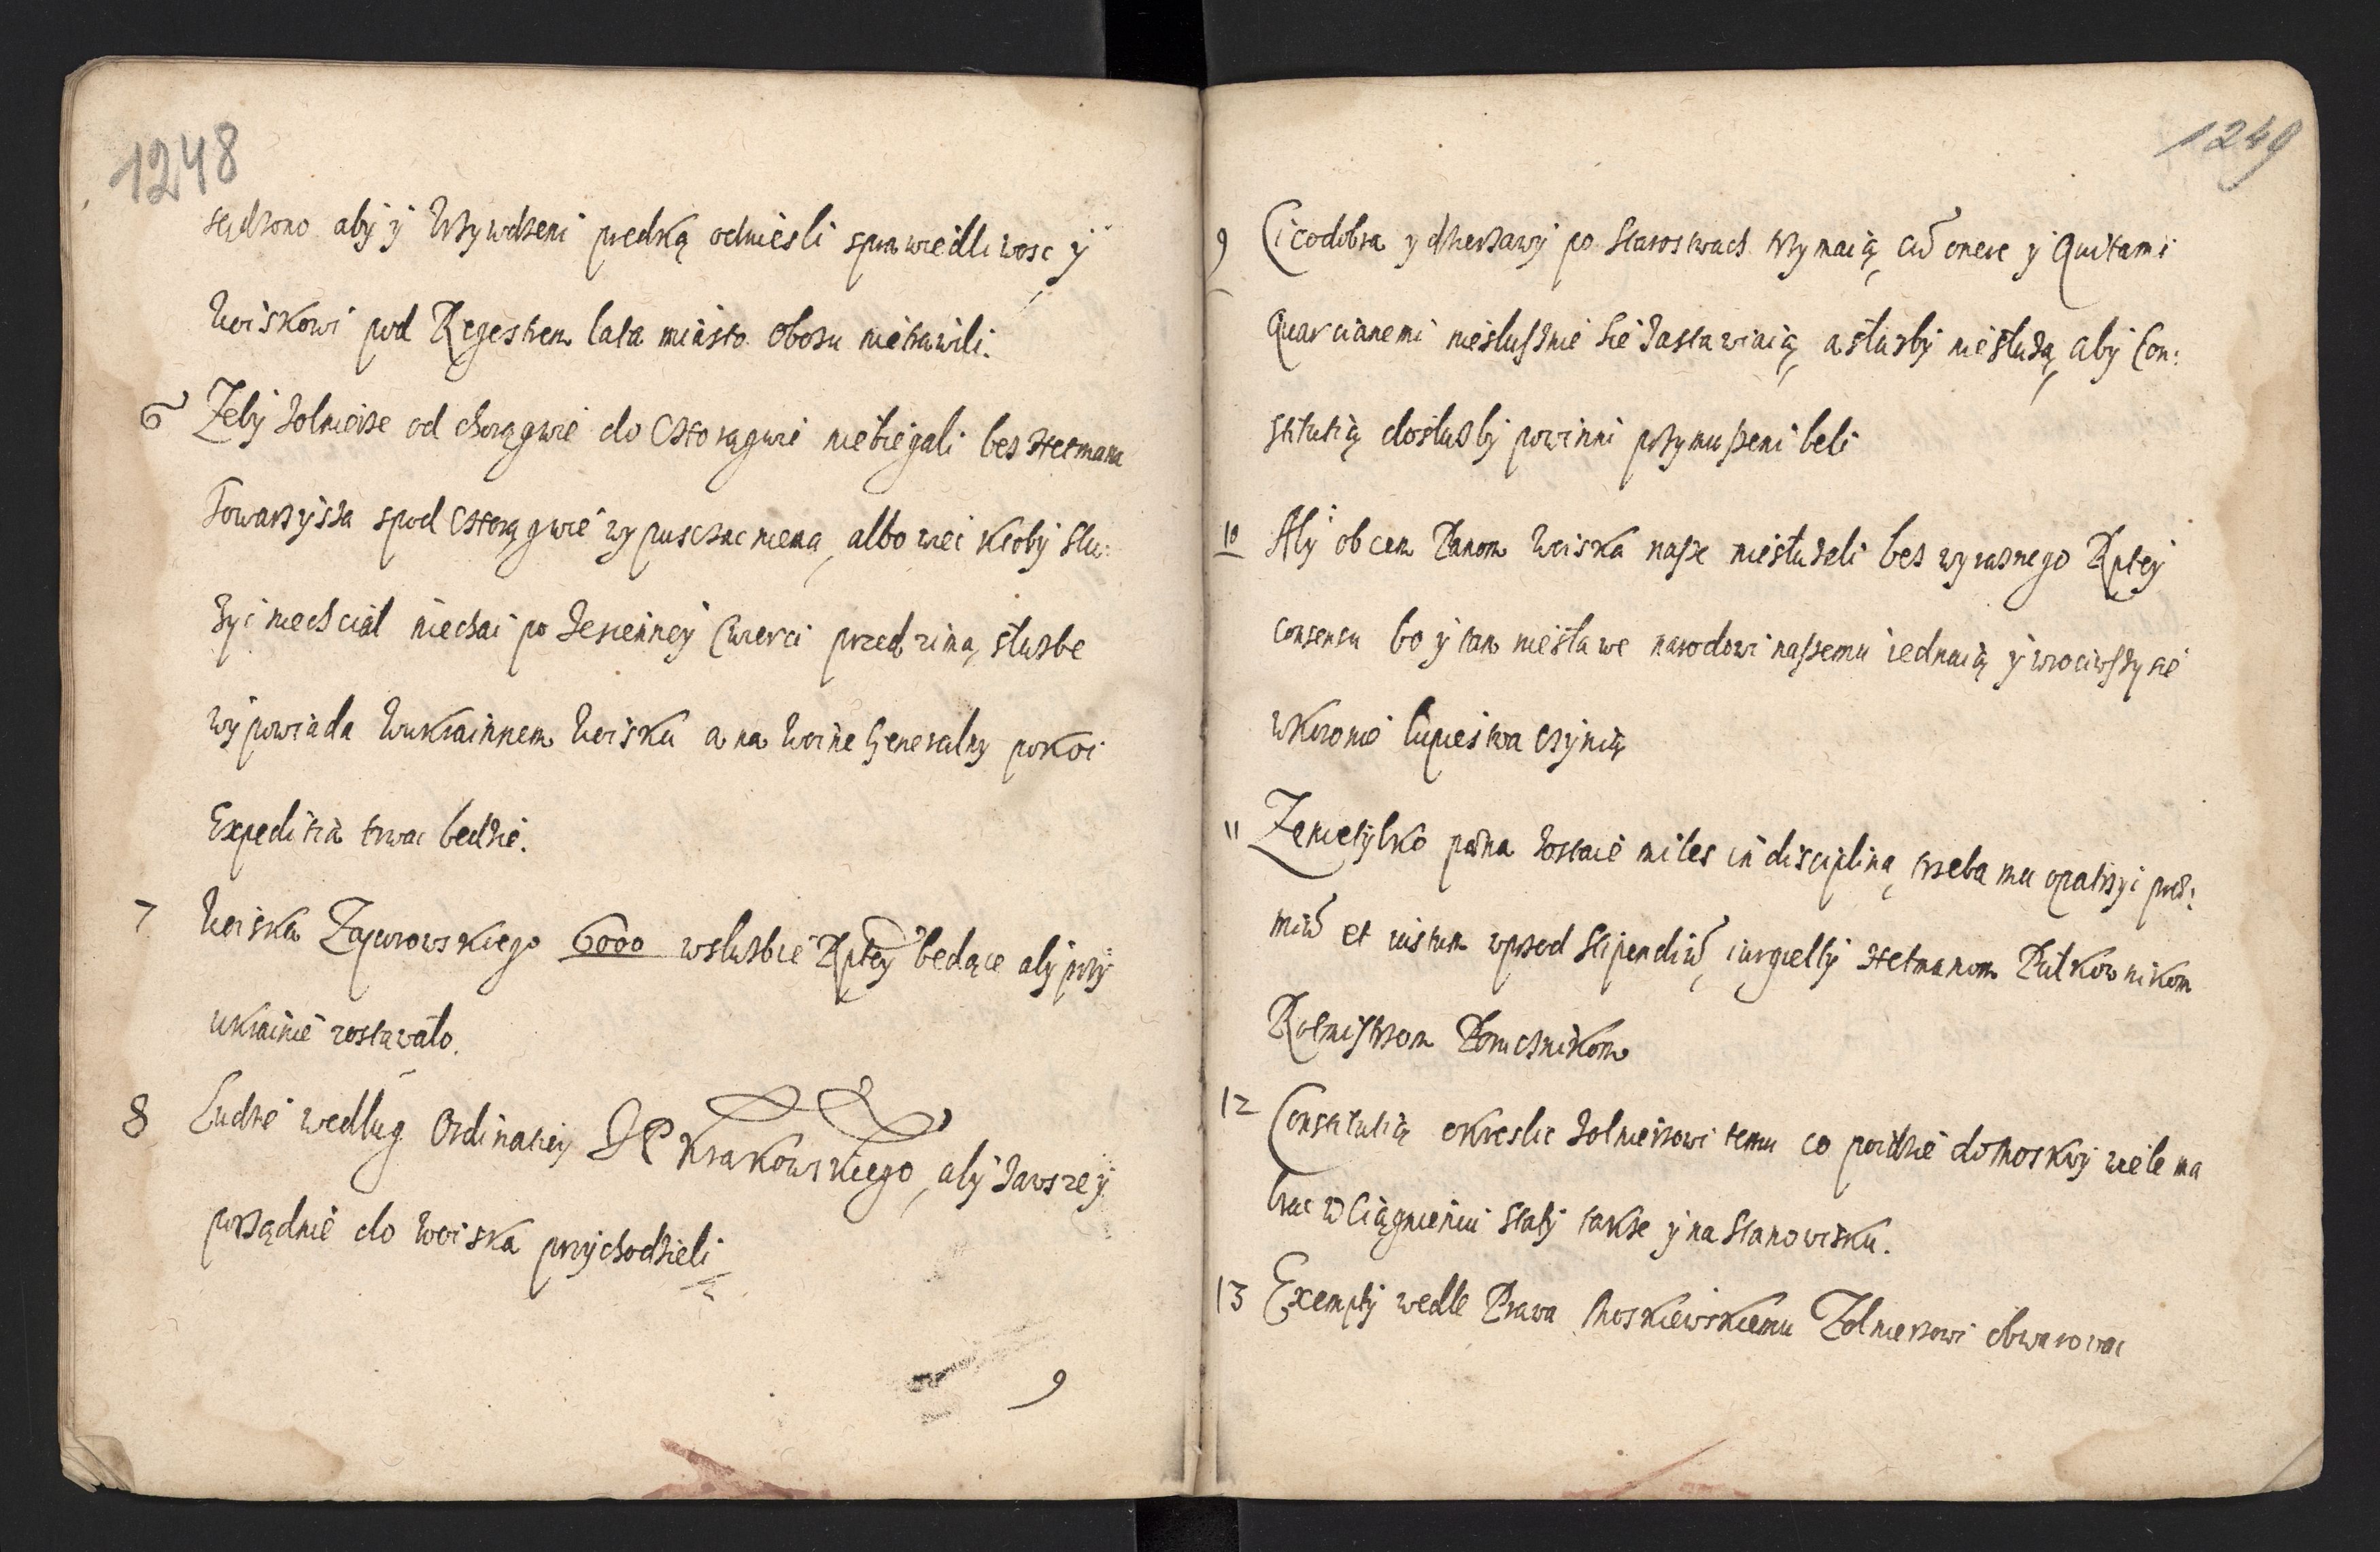 1248
sądzono aby y Vkrywdzeni prędką odniesli sprawiedliwosc y
Woiskowi pod Regestrem lata miasto obozu nietrawili.
6 Zeby zolnierze od chorągwie do Chorągwie niebiegali bez Hetmana
Towarzysza spod Chorągwie wypuszczac niemą, albowiei ktoby slu:
zyc niechciał niechai po Jesienney Cwierci przed zimą, słuzbe
wypowiada Wukrainnem Woisku a na Woine Generalny pokoi
Expeditia trwac bedzie.
7 Woiska Zaporowskiego 6000 wsluzbie Rptey bedące aby przy
ukrainie zostawało.
8 Ludzie według Ordinatiey JP Krakowskiego, aby zawsze y
porządnie do woiska przychodzieli
9
1249
9 Ci co dobra y dzierzawy po Starostwach trzymaią, cū onere y Quitami
Quarcianemi niesluszнie sie zastawiaią, a słuzby niesłuzą, aby Con:
stitutią dosłuzby powinni przymuszeni beli
10 Aby obcem Panom Woiska nasze niesłuzeli bez wyraznego Rptey
consensu bo y tam niesławe narodowi naszemu iednaią y wrociwszy sie
wkoronie łupiestwa czynią
11 Ze nietylko pœna zostaie miles in disciplina, trzeba mu opatrzyc præ:
miū et iustum wprzod stipendiū, iurgielty Hetmanom Pułkownikom
Rotmistrzom Porucznikom
12 Constitutią okreslic zolnierzowi temu co poidzie do Moskwy wiele ma
brac w Ciągnieniu staty takze y na stanowisku.
13 Exempty wedle Prawa Moskiewskiemu Zolnierzowi obwarowac